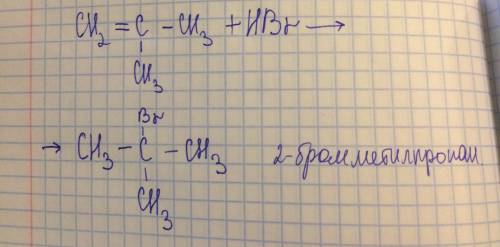 CH₂ = C – CH₃ + HBr ⟶
CH₃
Br
→ CH₃ – C – CH₃ 2-бромметилпропан
CH₃